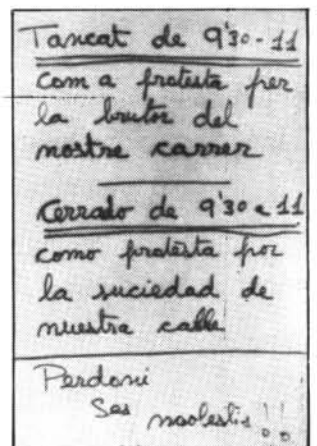 Tancat de 9'30-11
com a protesta per
la brutor del
nostre carrer
Cerrado de 9'30 a 11
como protesta por
la suciedad de
nuestra calle
Perdoni
Ses molestis!!